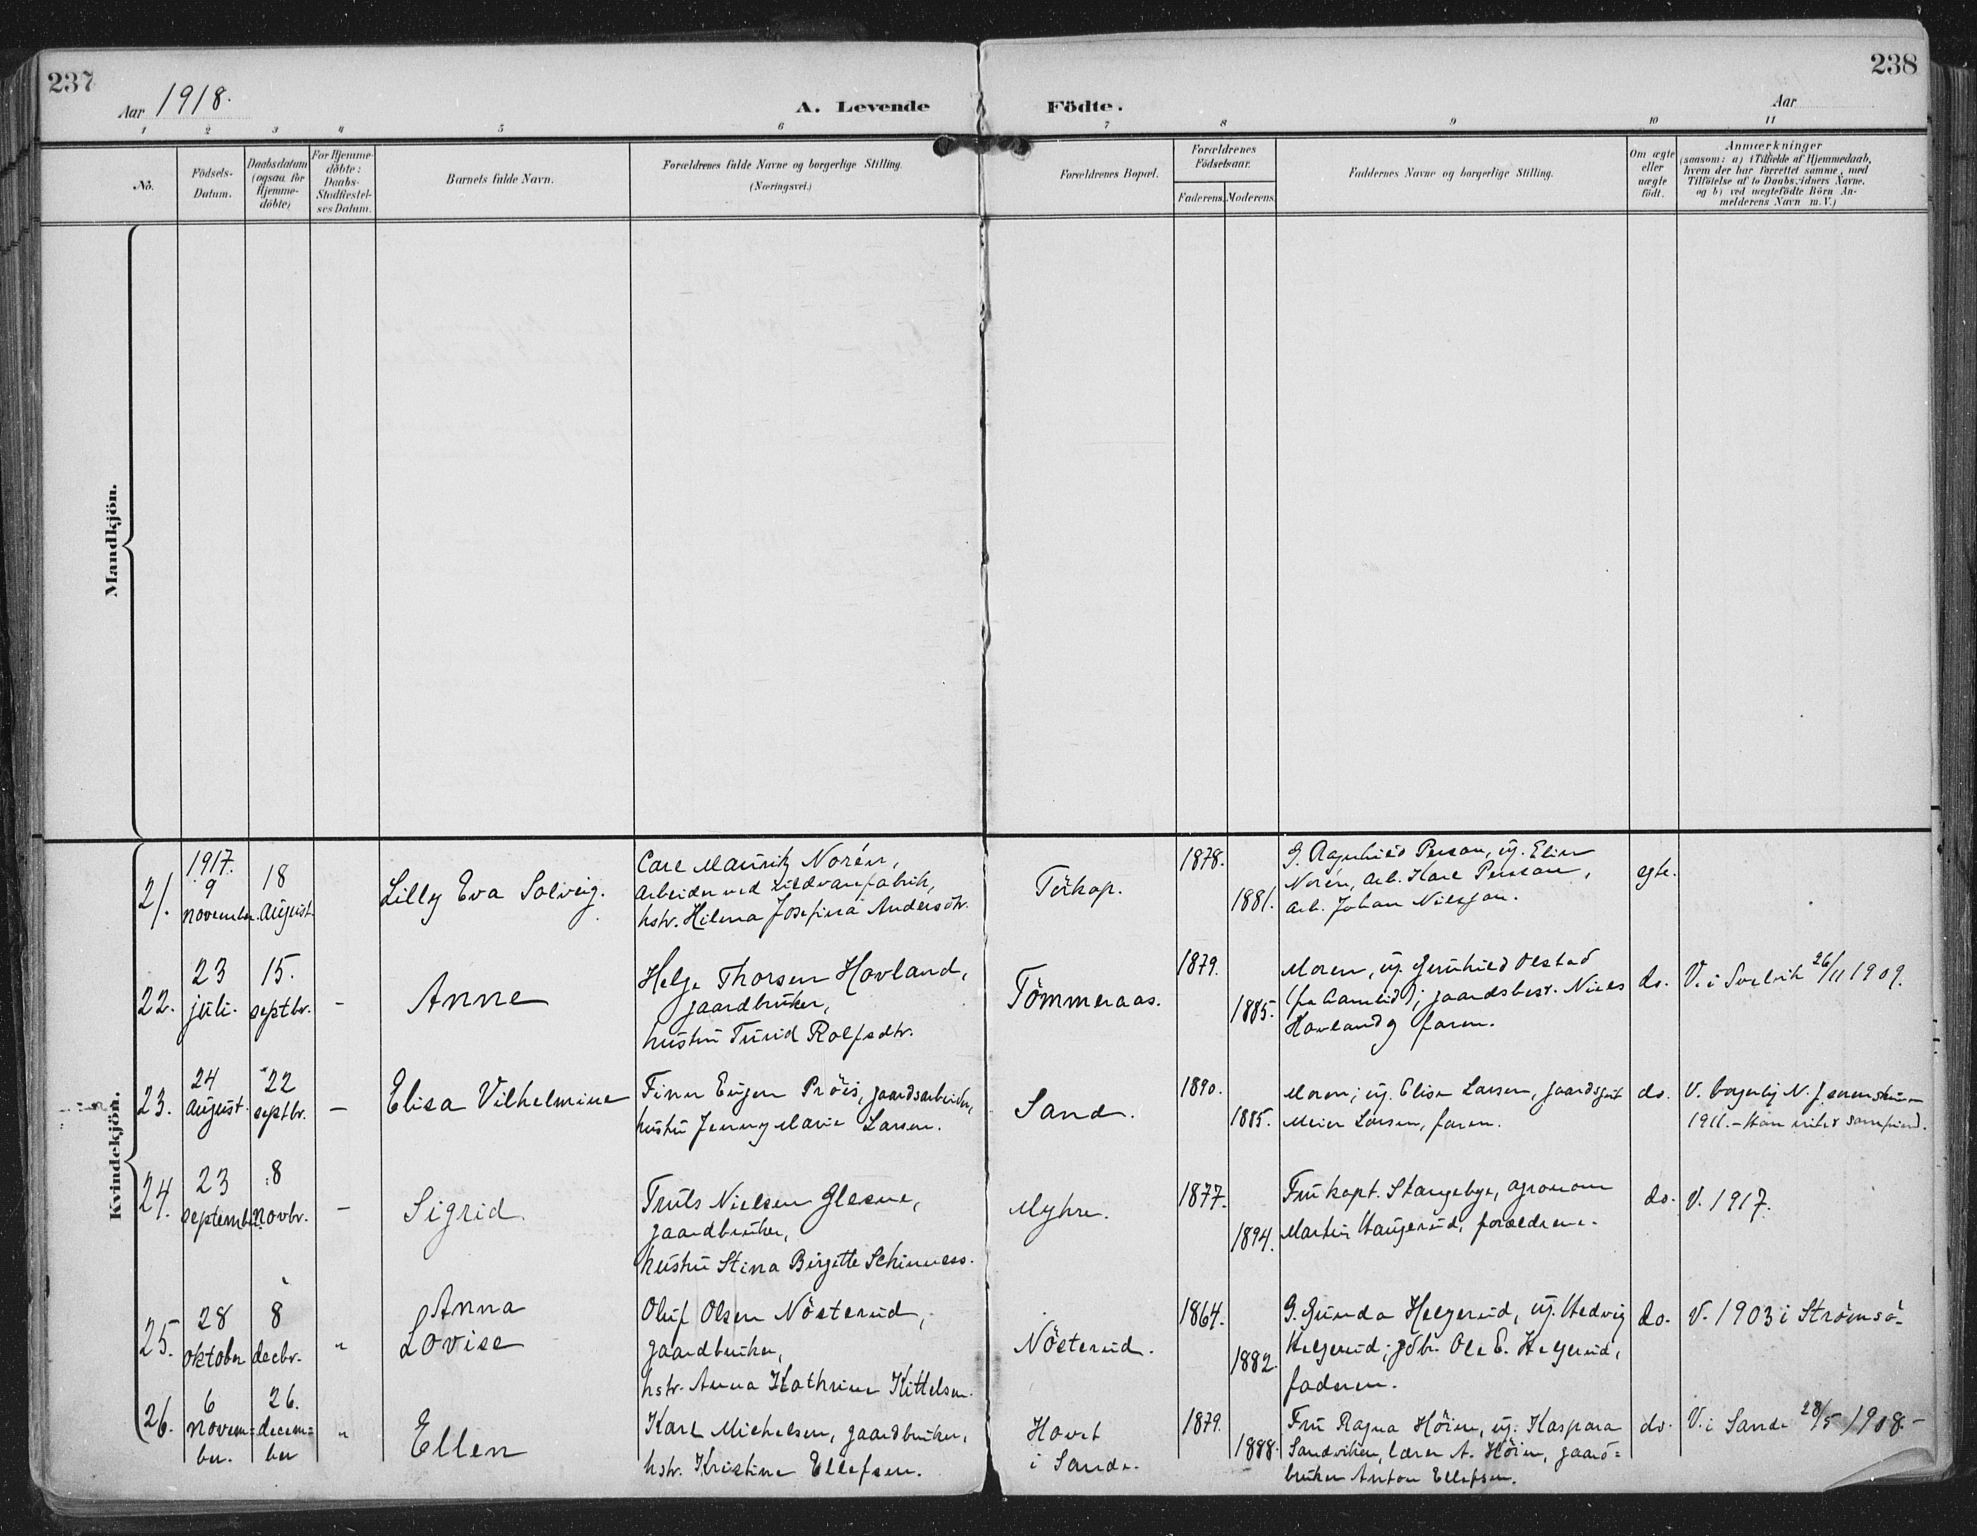 237
238
Aar 1918.
A. Levende
Födte.
Aar
1 2 3 4 5 6 7 8 9 10 11
No.
Födsels-
Datum.
Daabsdatum
(ogsaa for
Hjemme-
döbte)
For Hjemme-
döbte:
Daabs-
Stadfæstel-
ses Datum.
Barnets fulde Navn.
Forældrenes fulde Navne og borgerlige Stilling.
(Næringsvei.)
Forældrenes Bopæl.
Forældrenes
Födselsaar.
Faderens. Moderens.
Faddernes Navne og borgerlige Stilling.
Om ægte
eller
uægte
födt.
Anmærkninger
(saasom: a) i Tilfælde af Hjemmedaab,
hvem der har forrettet samme, med
Tilföielse af to Daabsvidners Navne,
og b) ved uægtefödte Börn An-
melderens Navn m. V.)
Mandkjön.
Kvindekjön.
21.
1917.
9
november
18
august
Lilly Eva Solveig.
Carl Mauritz Norén,
arbeider ved fabrik,
hstr. Hilma Josefina Andersdtr.
Torkop.
1878.
1881.
G. Ragnhild Person, uj. Elin
Norén, arb. Karl Persson,
arb. Johan Nilsson.
egte.
22.
23
juli.
15.
septbr.
–
Anne
Helge Thorsen Hovland,
gaardbruker,
hustru Turid Rolfsdtr.
Tömmeraas.
1879.
1885.
Moren, uj. Gunhild Olstad
gaardsbest. Niels
Hovland og faren.
do.
V. i Svelvik 26/11 1909.
23.
24
august.
22
septbr.
–
Elisa Vilhelmine
Finn Eugen Pröis, gaardsarbeider,
hustru Jenny Marie Larsen.
Sand.
1890.
1885.
Moren, uj. Elise Larsen, gaardsgut
Meier Larsen, faren.
do.
V. borgerlig
1911. –
24.
23
septembr.
8
novbr.
–
Sigrid.
Truls Nielsen Glesne,
gaardbruker,
hustru Stina Birgitte
Myhre.
1877.
1894.
Fru kapt. Stangebye, agronom
Martin Haugerud, forældrene.
do.
V. 1917.
25.
28
oktober
8
decbr.
"
Anna
Lovise
Oluf Olsen Nösterud,
gaardbruker,
hstr. Anna Kathrine Kittelsen.
Nösterud.
1864.
1882.
G. Gunda Helgerud, uj. Hedvig
Helgerud, gdbr. Ole E. Helgerud,
faderen.
do.
V. 1903 i Strömsö.
26.
6
novem=
ber.
26.
decem=
ber
"
Ellen
Karl Michelsen, gaardbruker,
hstr. Kristine Ellefsen.
Hovet
i Sande.
1879.
1888.
Fru Ragna Höien, uj. Kaspara
Sandviken, lærer A. Höien, gaard=
bruker Anton Ellefsen.
do.
V. i Sande 28/5 1908.